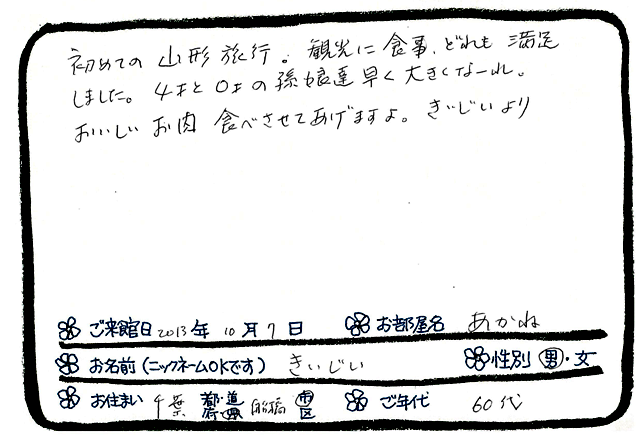 初めての 山形 旅行。 観光に 食事、どれも 満足
しました。 4才と 0才の 孫娘達 早く 大きくなーれ。
おいしい お肉 食べさせてあげますよ。 きいじいより
ご来館日 2013年 10月 7日 お部屋名 あかね
お名前(ニックネームOKです) きいじい 性別 男・女
お住まい 千葉 都道府県 船橋 市区 ご年代 60代